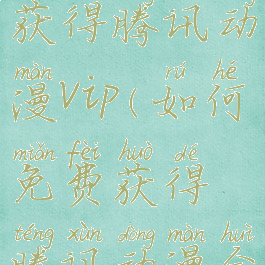 获得腾讯动
màn rú hé
漫vip(如何
miǎn fèi huò dé
免费获得
téng xùn dòng màn huì
腾讯动漫会